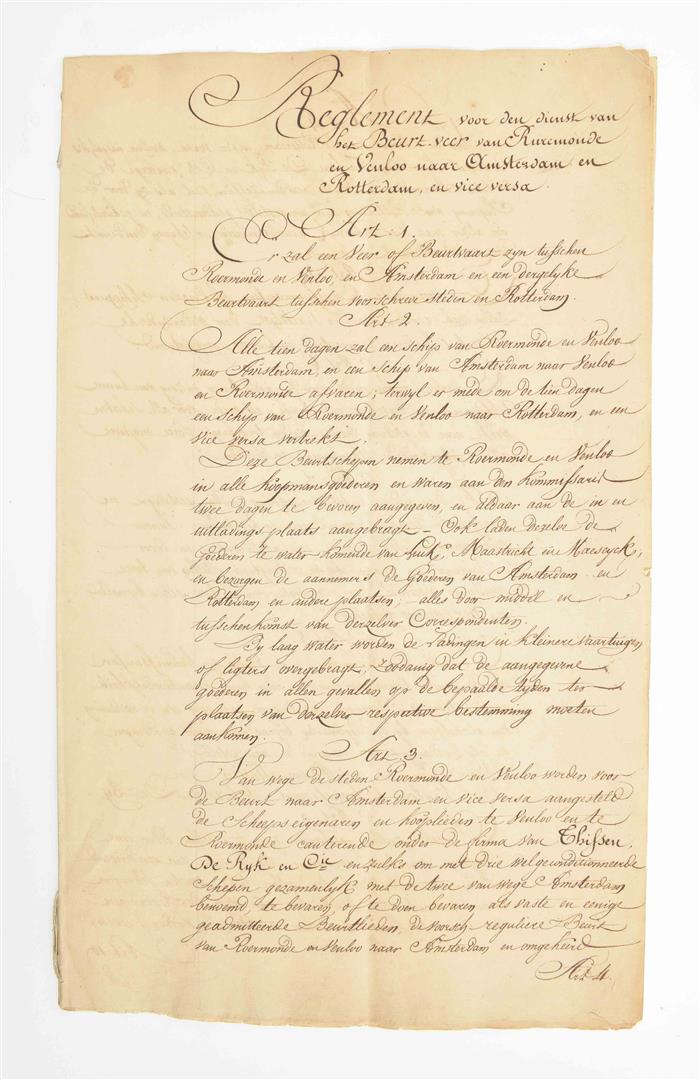 Reglement voor den dienst van
het Beurt-veer van Ruremonde
en Venloo naar Amsterdam en
Rotterdam, en vice versa.
Art: 1.
Er zal een Veer of Beurtvaart zyn tusschen
Roermonde en Venloo, en Amsterdam en een dergelyke
Beurtvaart tusschen voorschreve steden en Rotterdam.
Art 2.
Alle tien dagen zal een schip van Roermonde en Venloo
naar Amsterdam, en een schip van Amsterdam naar Venloo
en Roermonde afvaren; terwyl er mede om de tien dagen
een schip van Roermonde en Venloo naar Rotterdam, en een
vice versa vertrekt.
Deze Beurtschepen nemen te Roermonde en Venloo
in alle koopmansgoederen en waren aan den Kommissaris
twee dagen te bevoren aangegeven, en aldaar aan de in en
uitladings plaats aangebragt – Ook laden dezelve de
Goederen te water komende van Luik, Maastricht en Maeseyck,
en bezorgen de aannemers de Goederen van Amsterdam en
Rotterdam en andere plaatsen; alles door middel en
tusschenkomst van derzelver Correspondenten.
By laag water worden de Ladingen in kleinere vaartuigen
of ligters overgebragt, zoodanig dat de aangegevene
goederen in allen gevallen op de bepaalde tyden ter
plaatsen van derzelver respective bestemming moeten
aankomen.
Art 3.
Van wege de steden Roermonde en Venloo worden voor
de Beurt naar Amsterdam en vice versa aangesteld
de Scheepseigenaren en kooplieden te Venloo en te
Roermonde canterende onder de firma van Thissen,
De Ryk en Cie en zulks om met drie welgeconditionneerde
Schepen gezamenlyk met de twee van wege Amsterdam
benoemd, te bevaren of te doen bevaren als vaste en eenige
geadmitteerde Beurtlieden, de voorsch- reguliere Beurt
van Roermonde en Venloo naar Amsterdam en omgekeerd
Art 4.